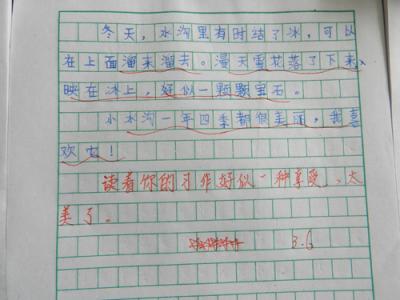 冬天,水沟里有时结了冰,可以
在上面溜来溜去。漫天雪花落了下来,
映在冰上,好似一颗颗宝石。
小水沟一年四季都很美丽,我喜
欢它!
读着你的习作好似一种享受,太
美了。
3.6